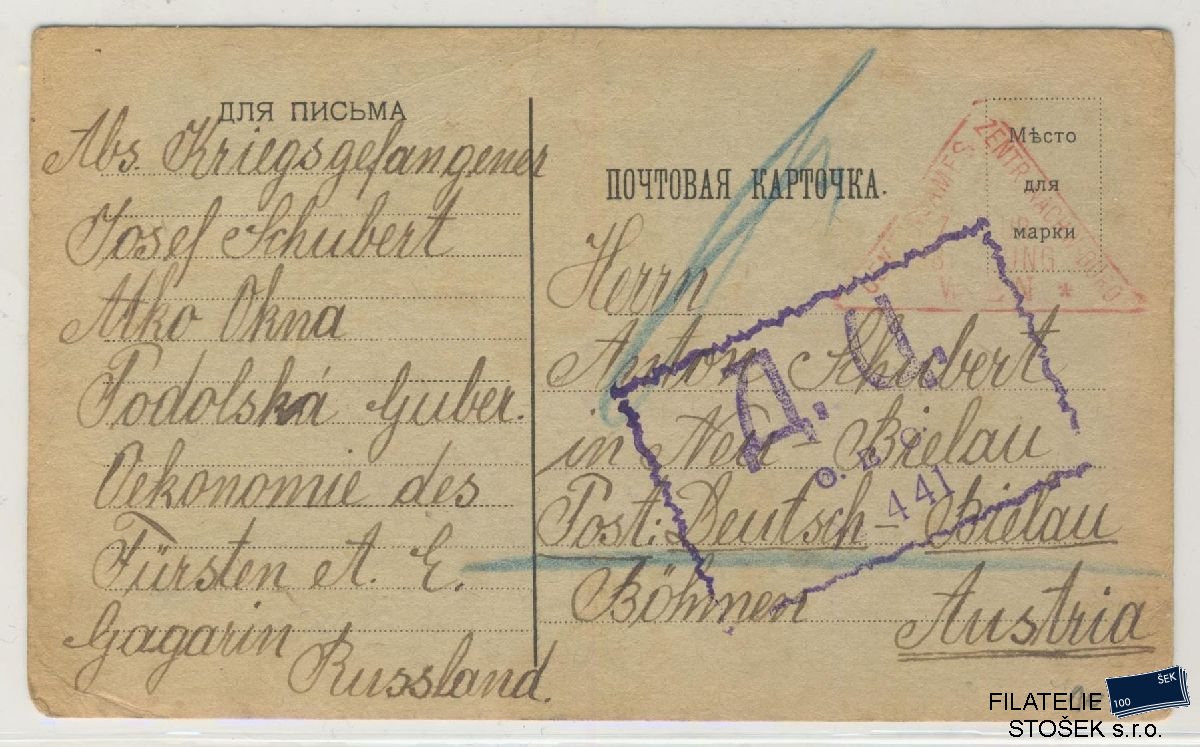 ДЛЯ ПИСЬМА
Abs. Kriegsgefangener
Josef Schubert
Okna
Podolská Guber.
Oekonomie des
Fürsten A. E.
Gagarin
Russland.
ПОЧТОВАЯ КАРТОЧКА.
Мѣсто
для
марки
ZENTR.
WIEN *
Herrn
Anton Schubert
in Neu-Bielau
Post: Deutsch-Bielau
Böhmen
Austria
Д. Ц.
441
100
ŠEK
FILATELIE
STOŠEK s.r.o.